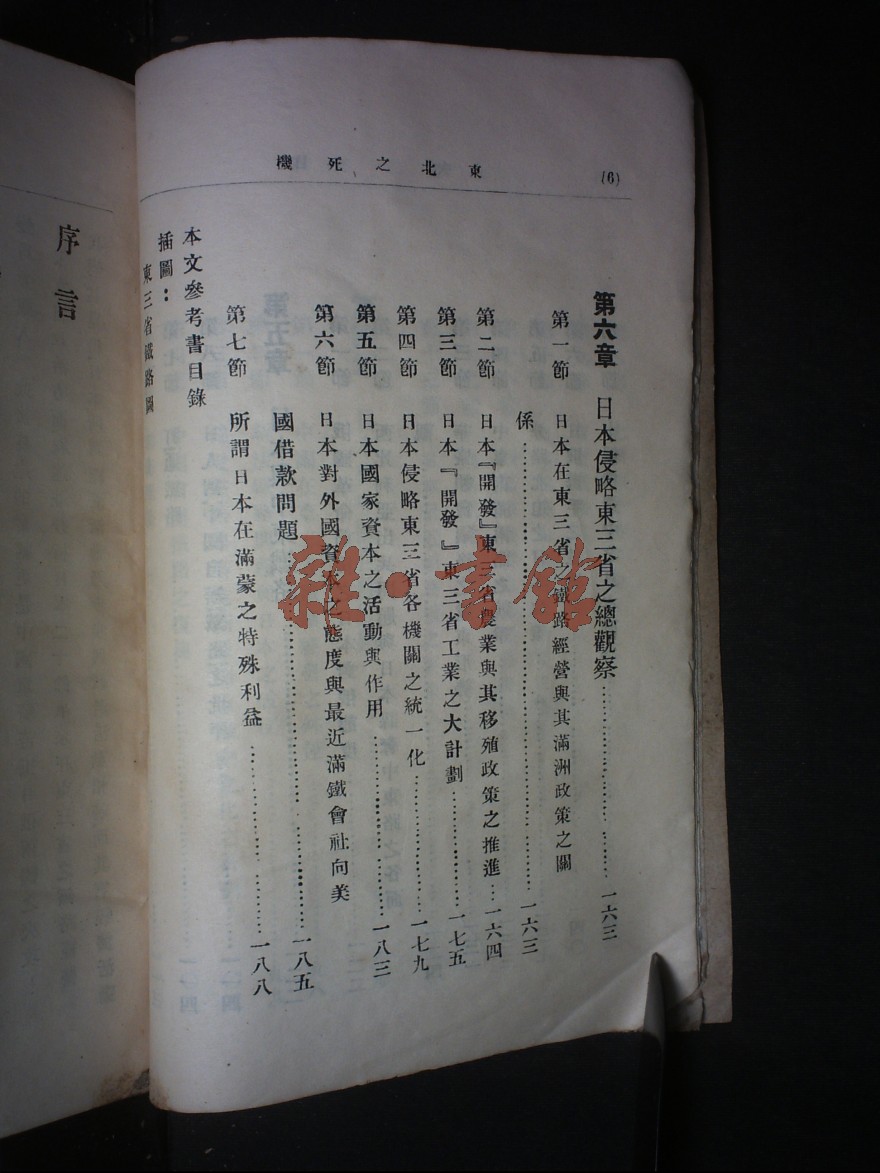 東北之死機
(6)
第六章 日本侵略東三省之總觀察……一六三
第一節 日本在東三省之鐵路經營與其滿洲政策之關
係……一六三
第二節 日本『開發』東三省農業與其移殖政策之推進…一六四
第三節 日本『開發』東三省工業之大計劃……一七五
第四節 日本侵略東三省各機關之統一化……一七九
第五節 日本國家資本之活動與作用……一八三
第六節 日本對外國資本之態度與最近滿鐵會社向美
國借款問題……一八五
第七節 所謂日本在滿蒙之特殊利益……一八八
本文參考書目錄
插圖：
東三省鐵路圖
序言
雜·書館